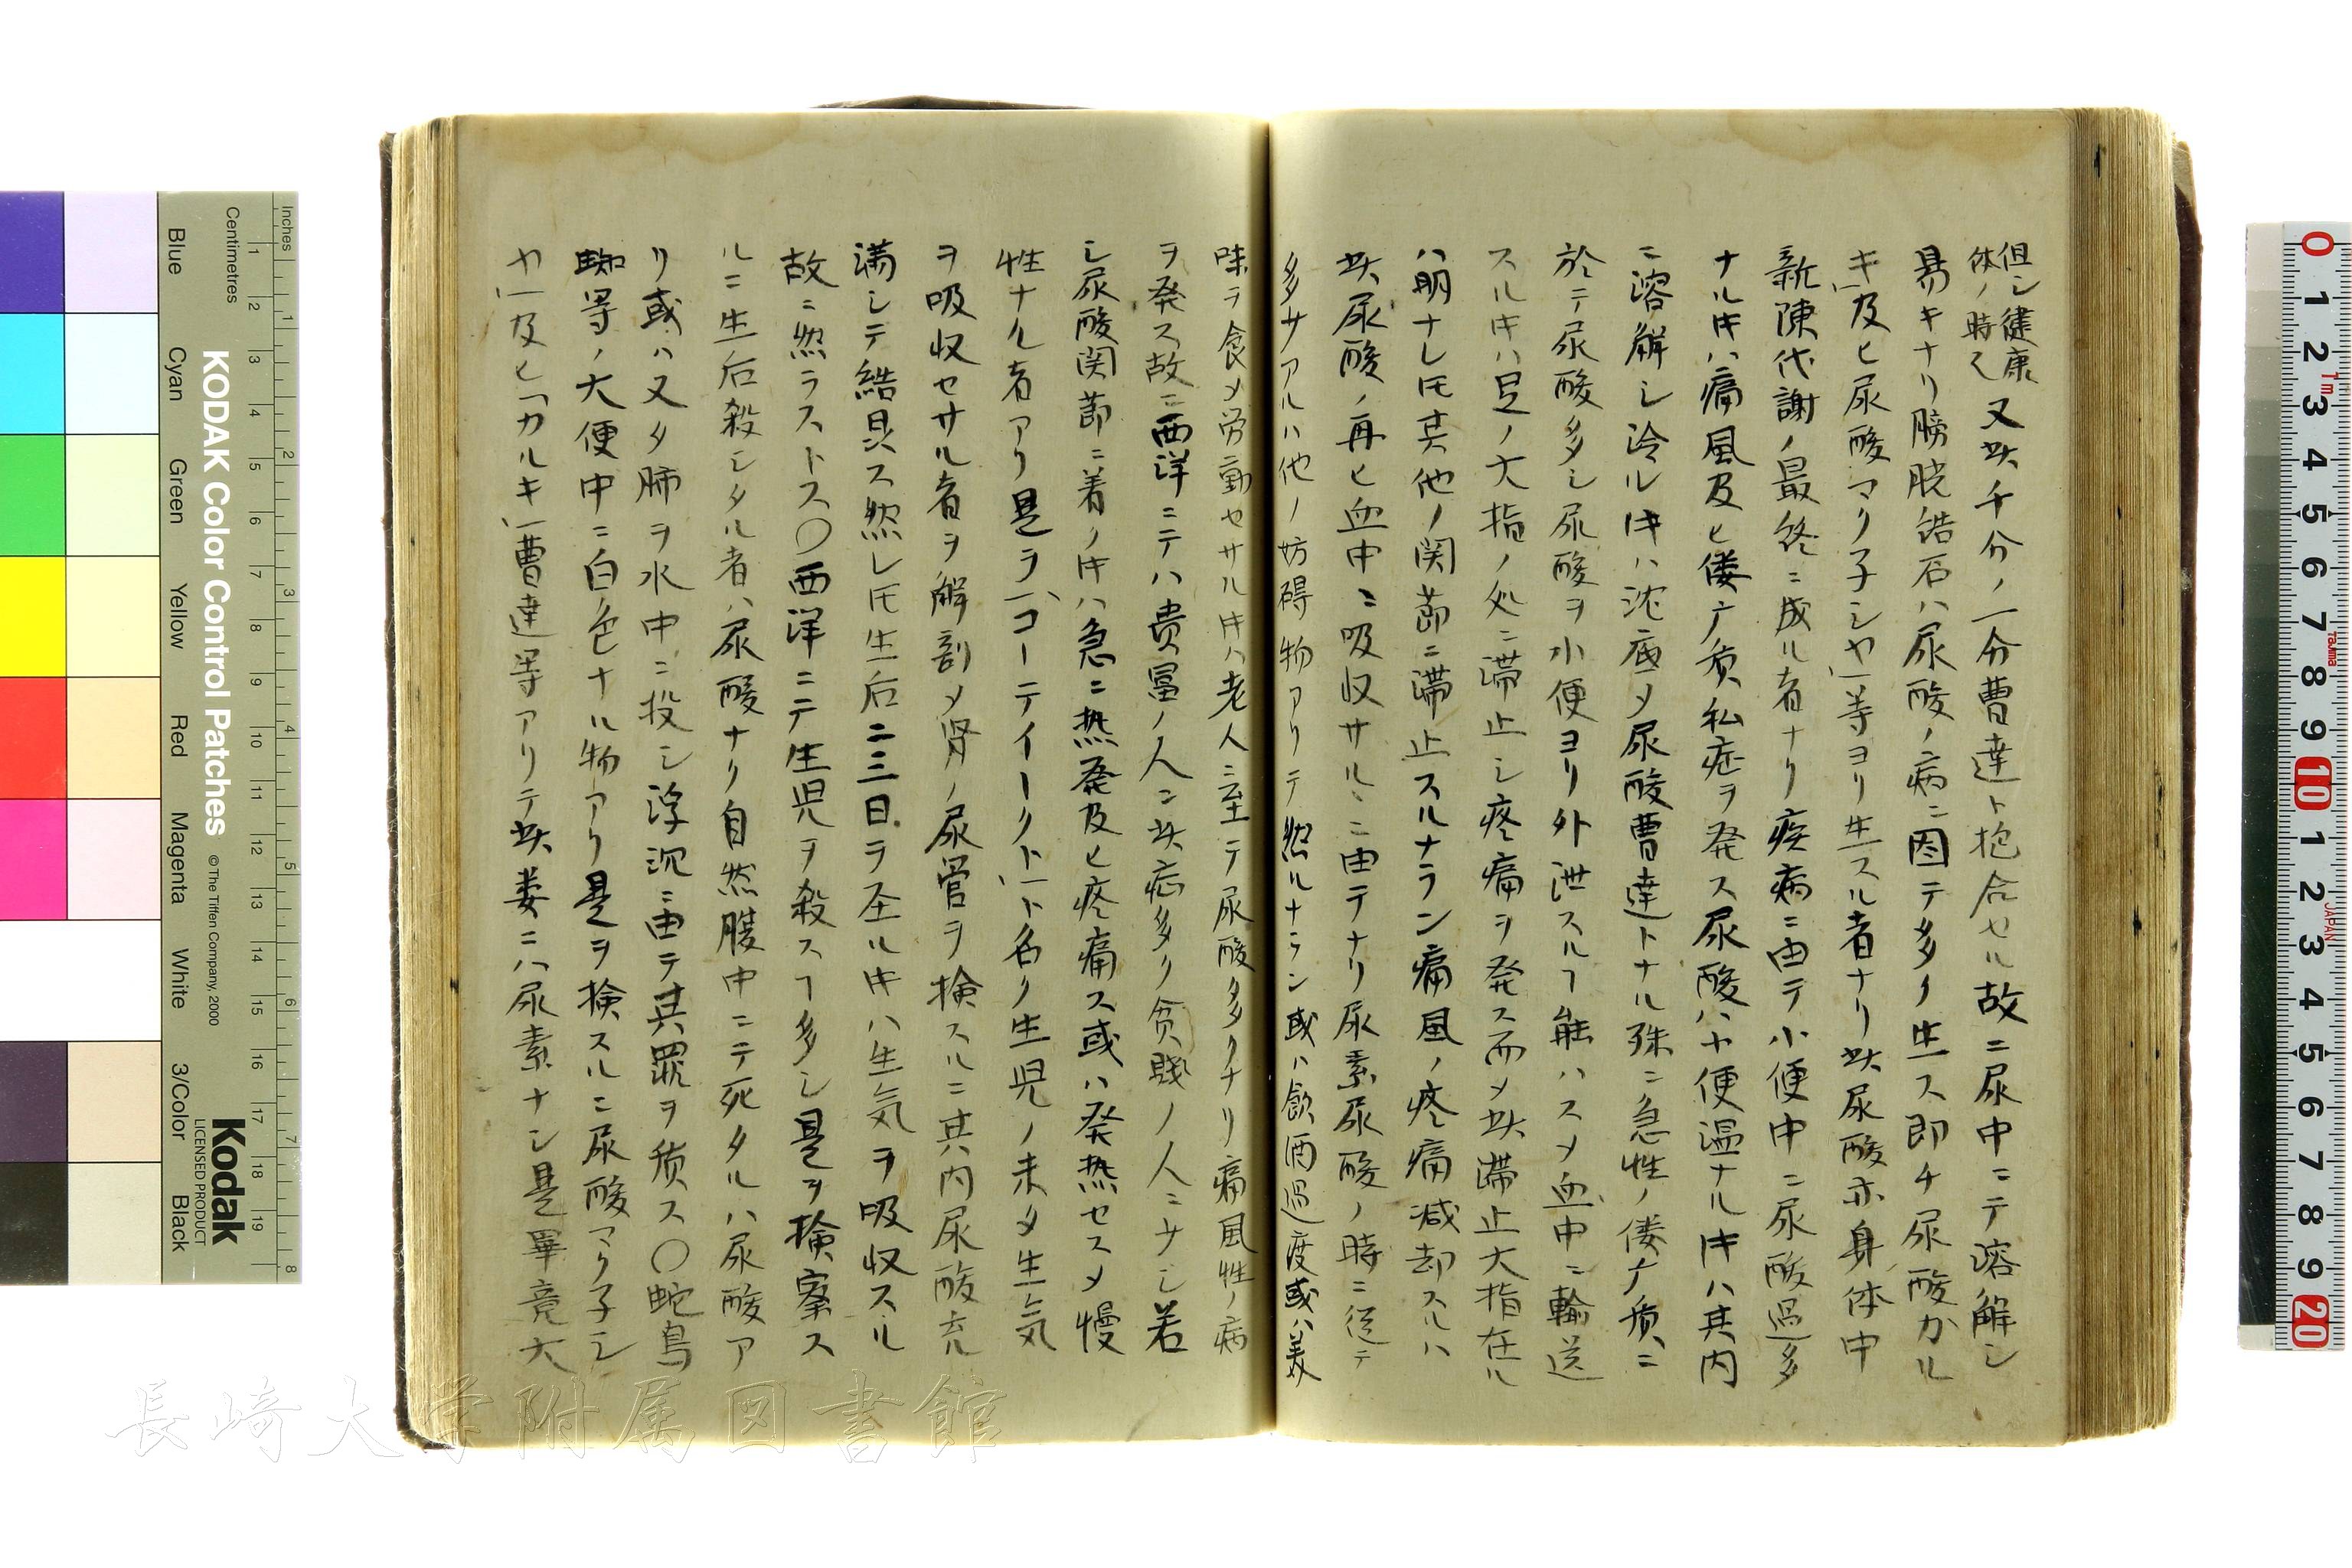 但シ健康
体ノ時ハ
又此千分ノ一分曹達ト抱合セル故ニ尿中ニテ溶解シ
易キナリ膀胱結石ハ尿酸ノ病ニ因テ多ク生ス即チ尿酸カル
キ」及ヒ尿酸マク子シヤ」等ヨリ生スル者ナリ此尿酸亦身体中
新陳代謝ノ最終ニ成ル者ナリ疾病ニ由テ小便中ニ尿酸過多
ナル𪜈ハ痛風及ヒ僂麻質私症ヲ発ス尿酸ハ小便温ナル𪜈ハ其内
ニ溶解シ冷ル𪜈ハ沈底〆尿酸曹達トナル殊ニ急性ノ僂麻質ニ
於テ尿酸多シ尿酸ヲ小便ヨリ外泄スルヿ能ハス〆血中ニ輸送
スル𪜈ハ足ノ大指ノ処ニ滞止シ疼痛ヲ発ス而〆此滞止大指在ル
ハ明ナレ𪜈其他ノ関節ニ滞止スルナラン痛風ノ疼痛減却スルハ
此尿酸ノ再ヒ血中ニ吸収サルヽニ由テナリ尿素尿酸ノ時ニ従テ
多サアルハ他ノ妨碍物アリテ然ルナラン或ハ飲酒過度或ハ美
味ヲ食〆労動セサル𪜈ハ老人ニ至テ尿酸多クナリ痛風性ノ病
ヲ発ス故ニ西洋ニテハ貴冨ノ人ニ此症多ク貧賤ノ人ニ少シ若
シ尿酸関節ニ着ク𪜈ハ急ニ熱発及ヒ疼痛ス或ハ発熱セス〆慢
性ナル者アリ是ヲ「コーテイークト」ト名ク生児ノ未タ生気
ヲ吸収セサル者ヲ解剖〆腎ノ尿管ヲ検スルニ其内尿酸充
満シテ結晶ス然レ𪜈生后二三日ヲ至ル𪜈ハ生気ヲ吸収スル
故ニ然ラストス〇西洋ニテ生児ヲ殺スヿ多シ是ヲ検察ス
ルニ生后殺シタル者ハ尿酸ナリ自然腹中ニテ死タルハ尿酸ア
リ或ハ又タ肺ヲ水中ニ投シ浮沉ニ由テ其罪ヲ質ス〇蛇鳥
蜘等ノ大便中ニ白色ナル物アリ是ヲ検スルニ尿酸マク子シ
ヤ」及ヒ「カルキ」曹達等アリテ此糞ニハ尿素ナシ是畢竟大
KODAK Color Control Patches
© The Tiffen Company, 2000
Kodak
LICENSED PRODUCT
Inches
Centimetres
Blue
Cyan
Green
Yellow
Red
Magenta
White
3/Color
Black
長崎大学附属図書館